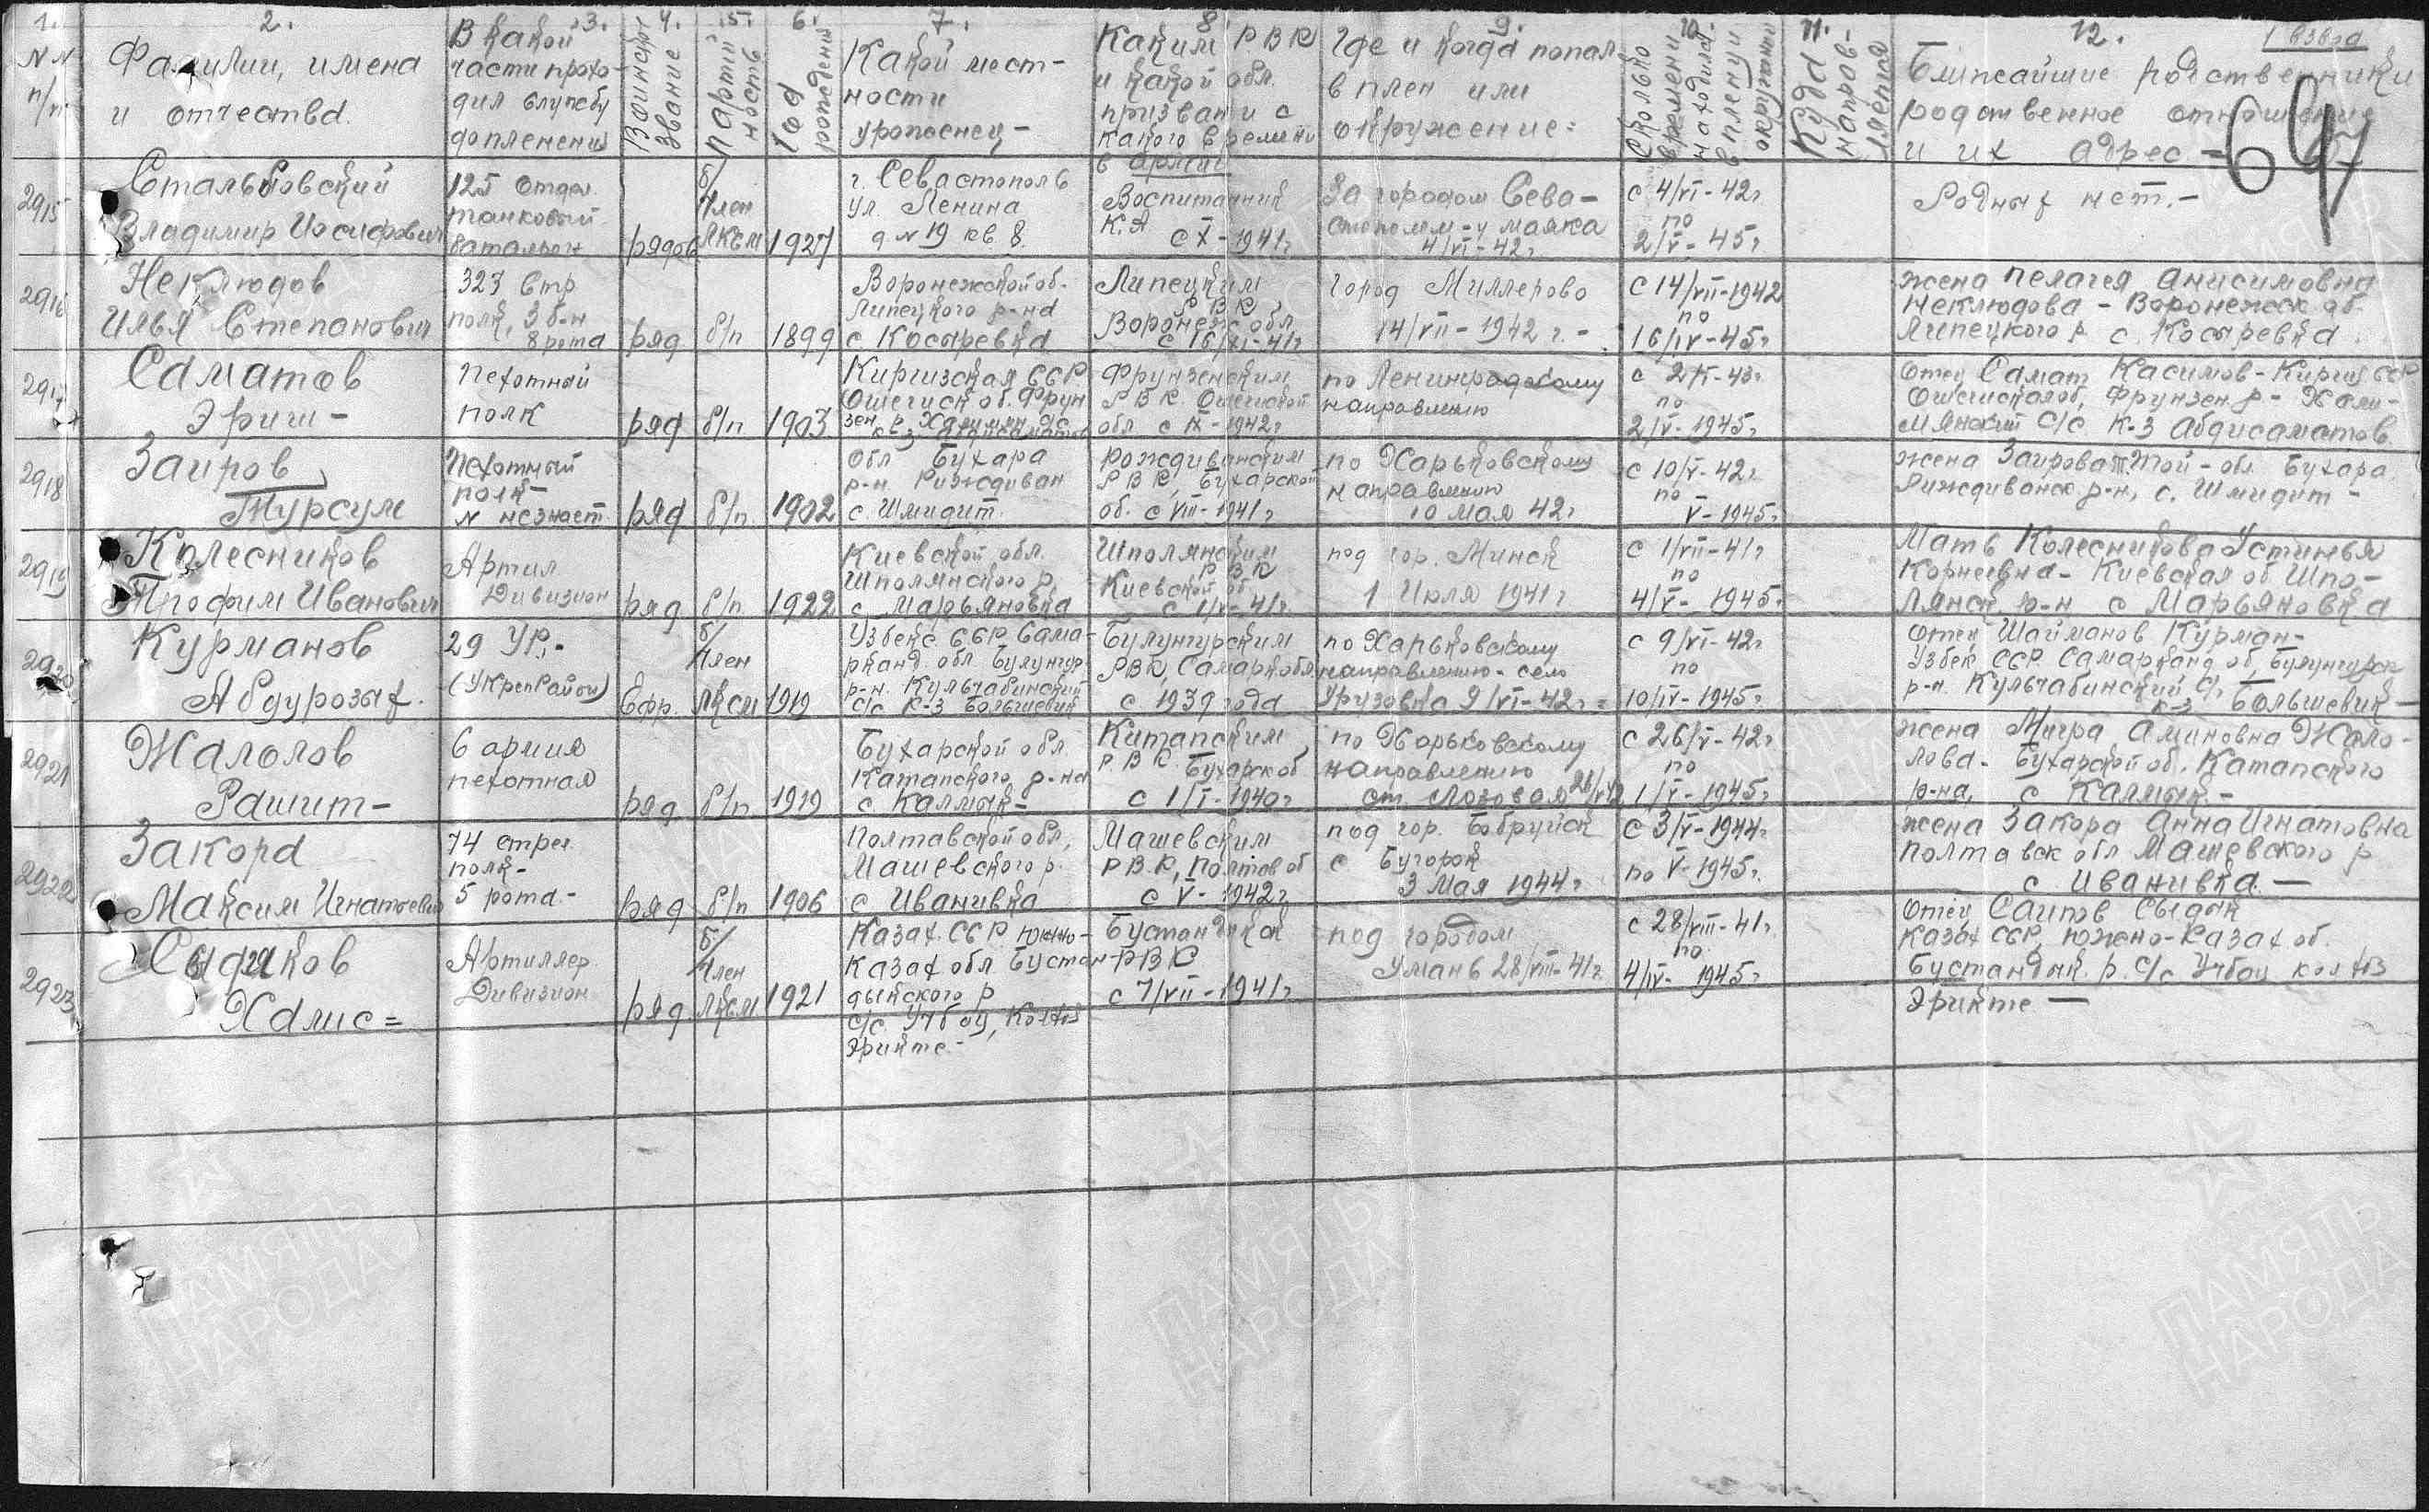 1. 2. 3. 4. 5. 6. 7. 8. 9. 10. 11. 12. 1 взвод
N N п/п
Фамилии, имена
и отчества.
В какой
части прохо-
дил службу
до пленения
Воинское
звание
партий
ность
Год
рождения
Какой мест-
ности
уроженец -
Каким РВК
и какой обл.
призван и с
какого времени
в армии
Где и когда попал
в плен или
окружение =
Сколько
времени
находился
в плену и
окружении
Куда
направ-
ляется
Ближайшие родственники
родственное отношение
и их адрес -
2915
Стальбовский
Владимир Иосифович
125 отдел.
танковый
батальон
рядов
б/
член
ЛКСМ
1927
г. Севастополь
ул. Ленина
д. № 19 кв 8.
Воспитанник
К.А.
с X - 1941 г
За городом Сева-
стополем - у маяка
4/VI - 42 г
с 4/VI - 42 г
по
2/V - 45 г
Родных нет. -
2916
Неклюдов
Илья Степанович
323 Стр
полк, 3 б-н
8 рота
ряд
б/п
1899
Воронежской об.
Липецкого р-на
с Косыревка
Липецким
РВК
Воронеж обл
с 16/XI - 41 г
город Миллерово
14/VII - 1942 г. -
с 14/VII - 1942
по
16/IV - 45 г
жена Пелагея Анисимовна
Неклюдова - Воронежск об.
Липецкого р с. Косыревка.
2917
Саматов
Эриш -
Пехотный
полк
ряд
б/п
1903
Киргизская ССР.
Ошегиск об. Фрун
Фрунзенским
РВК. Ошегиской
обл. с IX - 1942 г
по Ленинградскому
направлению
по
2/V - 1945 г
отец Самат Касимов - Киргиз ССР
Ошегиская об, Фрунзен. р - Хали-
мянский С/с К-З Абдисаматов
2918
Заиров
Турсум
Пехотный
полк -
N неизвест.
ряд
б/п
1902
обл Бухара
р-н. Рижсдиван
с. Шмидит
рождиванским
РВК, Бухарской
об. с VIII - 1941 г
по Харьковскому
направлению
10 мая 42 г
с 10/V - 42 г
по
V - 1945 г
жена Заирова Той - обл Бухара
Рижсдиванск р-н, с. Шмидит -
2919
Колесников
Трофим Иванович
Артил
Дивизион
ряд
б/п
1922
Киевской обл.
Шполянского р.
с. Марьяновка
Шполянским
РВК
Киевской об
с 1/V - 41 г.
под гор. Минск
1 Июля 1941 г
с 1/VII - 41 г
по
4/V - 1945 г
Мать Колесникова Устинья
Корнеевна - Киевская об Шпо-
лянск. р-н с Марьяновка
2920
Курманов
Абдурозых.
29 УР, -
(УкрепРайон)
Ефр.
б/
член
ЛКСМ
1919
Узбекс ССР Сама-
рканд. обл. Булунгур
р-н. Кульчабинский
с/с К-З Большевик
Булунгурским
РВК, Самарк обл
с 1939 года
по Харьковскому
направлению - село
Урузовка 9/VI - 42 г =
с 9/VI - 42 г
по
10/IV - 1945 г
отец Шайманов Курман -
Узбек ССР. Самарканд об, Булунгурск
р-н. Кульчабинский с/с
к-з Большевик -
2921
Жалолов
Рашит -
6 армия
пехотная
ряд
б/п
1919
Бухарской обл.
Катапского р-на
с Калмык -
Китапским
Р.В.К. Бухарск об
с 1/I - 1940 г
по Харьковскому
направлению
ст. Лозовая 26/V 42
с 26/V - 42 г
по
1/V - 1945 г
жена Мигра Аминовна Жало-
лова - Бухарской об. Катапского
р-на, с Калмык. -
2922
Закора
Максим Игнатьевич
74 стрел
полк -
5 рота -
ряд
б/п
1906
Полтавской обл,
Машевского р.
с Иванивка
Машевским
РВК, Полтав об
с V - 1942 г
под гор. Бобруйск
с Бугорок
3 Мая 1944 г
с 3/V - 1944 г
по V - 1945 г.
жена Закора Анна Игнатовна
Полтавск обл Машевского р
с Иванивка. -
2923
Сыдиков
Халис =
Артиллер.
Дивизион
ряд
б/
член
ЛКСМ
1921
Казах. ССР. Южно-
Казах обл. Бустан-
дыкского р
с/с. Учбоу, Колхоз
Эрикте. -
Бустандыкск
РВК
с 7/VII - 1941 г
под городом
Умань 28/VIII - 41 г
с 28/VIII - 41 г.
по
4/IV - 1945 г
отец Саитов Сыдык
Казах ССР, Южно-Казах об.
Бустандык. р. С/с Учбоу колхоз
Эрикте -
ПАМЯТЬ
НАРОДА
ПАМЯТЬ
НАРОДА
ПАМЯТЬ
НАРОДА